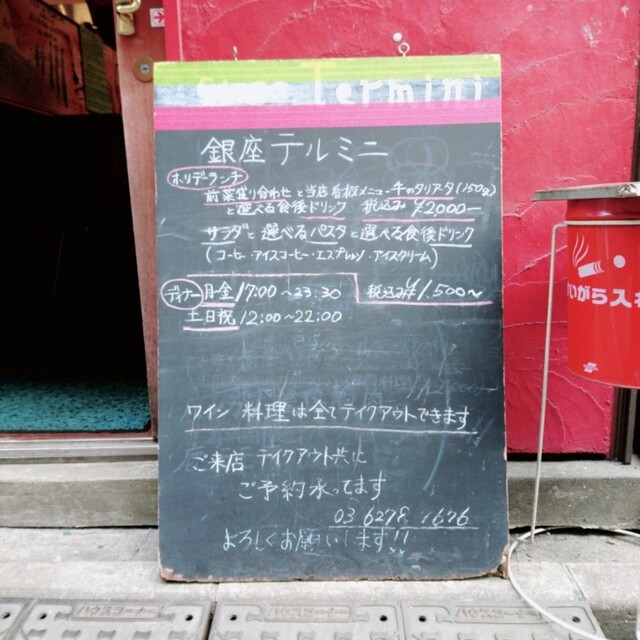 Termini
銀座テルミニ
ホリデーランチ
前菜盛り合わせと当店看板メニューキャタリアータ(150g)
と選べる食後ドリンク 税込み ¥2000ー
サラダと選べるパスタと選べる食後ドリンク
(コーヒー・アイスコーヒー・エスプレッソ・アイスクリーム)
税込み¥1.500〜
ディナー 月金 17:00〜23:30
土日祝 12:00〜22:00
ワイン 料理は全てテイクアウトできます
ご来店 テイクアウト共に
ご予約承ってます
03 6278 1676
よろしくお願いします!!
いがら入
ハウスコーナー
ハウスコーナー
ハウスコーナー